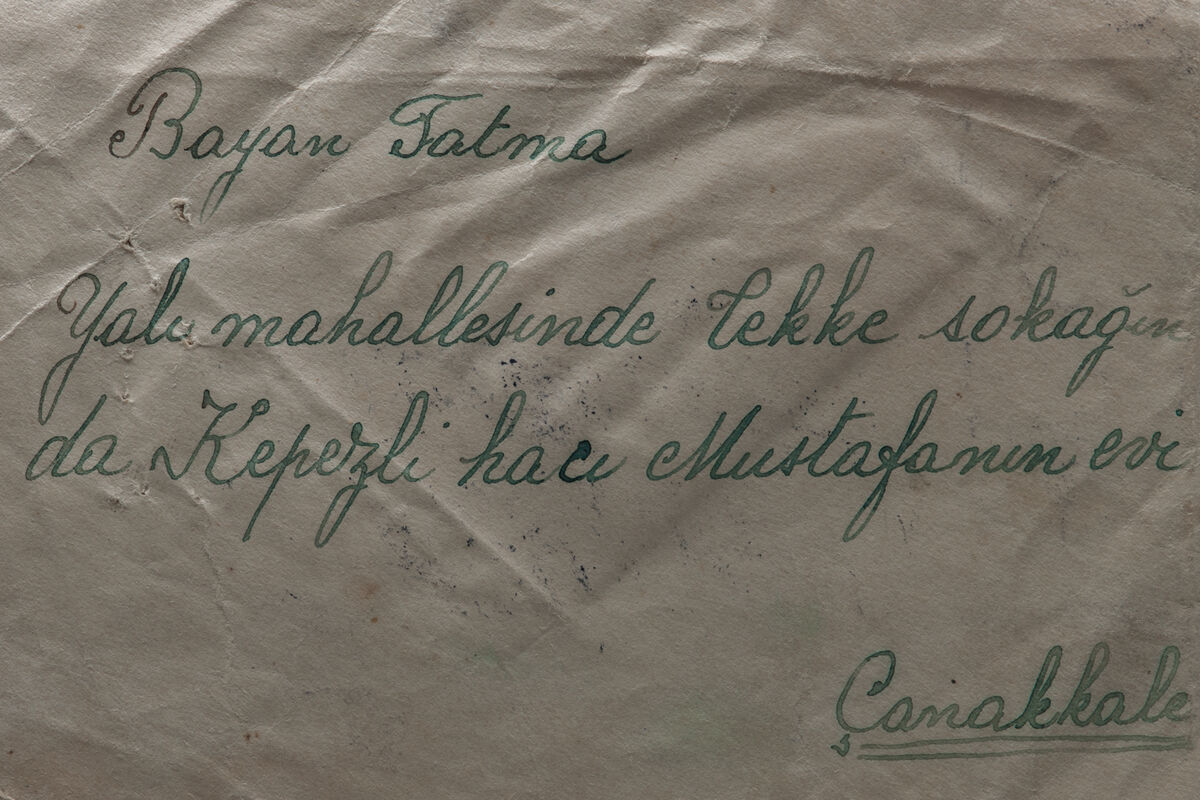 Bayan Fatma
Yalı mahallesinde Tekke sokağın
da Kepezli hacı Mustafanın evi
Çanakkale